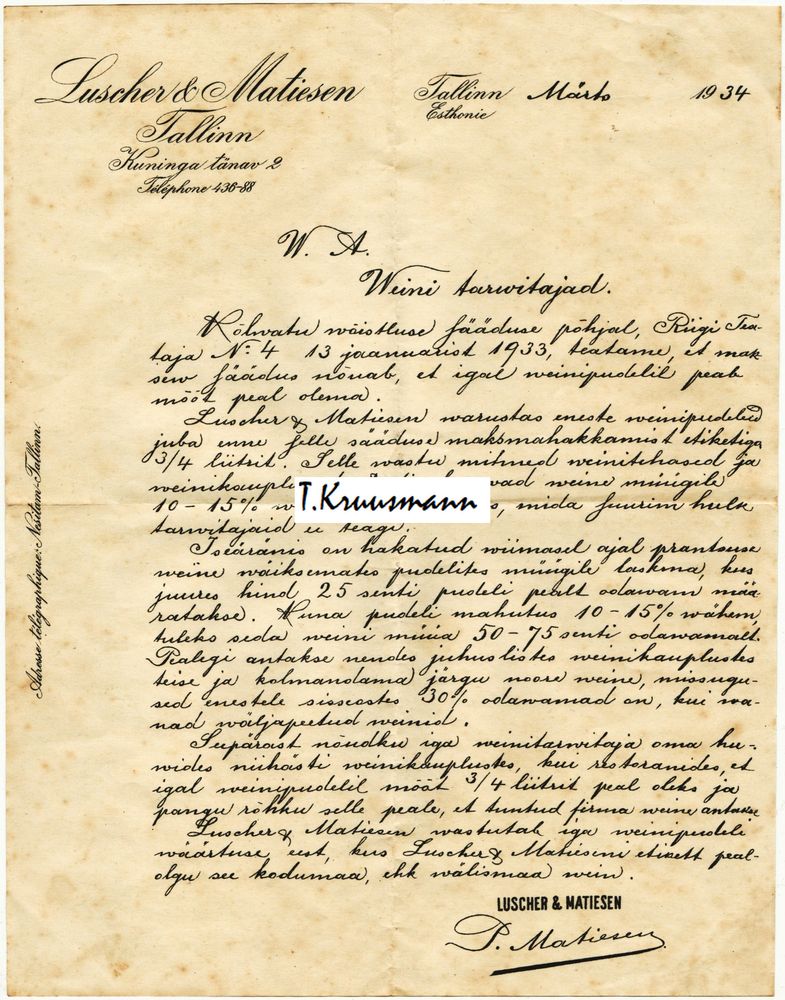 Luscher & Matiesen
Tallinn
Kuninga tänav 2
Téléphone 436-88
Tallinn Märts 1934
Esthonie
W. A.
Weini tarwitajad.
Kõlwatu wõistluse sääduse põhjal, Riigi Tea-
taja No 4 13 jaanuarist 1933, teatame, et mak-
sew säädus nõuab, et igal weinipudelil peab
mõõt peal olema.
Luscher & Matiesen warustas eneste weinipudelid
juba enne selle sääduse maksmahakkamist etiketiga
3/4 liitrit. Selle wastu mitmed weinitehased ja
weinikauplu wad weine müügile
10-15% w s, mida suurim hulk
tarwitajaid ei teagi.
Iseäranis on hakatud wiimasel ajal prantsuse
weine wäiksemates pudelites müügile laskma, kus
juures hind 25 senti pudeli pealt odawam mää-
ratakse. Kuna pudeli mahutus 10-15% wähem,
tuleks seda weini müüa 50-75 senti odawamalt.
Pealegi antakse nendes juhuslistes weinikauplustes
teise ja kolmandama järgu noore weine, missugu-
sed enestele sisseostes 30% odawamad on, kui wa-
nad wäljapeetud weinid.
Seepärast nõudku iga weinitarwitaja oma hu-
wides niihästi weinikauplustes, kui restoranides, et
igal weinipudelil mõõt 3/4 liitrit peal oleks ja
pangu rõhku selle peale, et tuntud firma weine antakse
Luscher & Matiesen wastutab iga weinipudeli
wäärtuse eest, kus Luscher & Matieseni etikett peal-
olgu see kodumaa, ehk wälismaa wein.
LUSCHER & MATIESEN
P. Matiesen
Adresse télégraphique: Nesitam-Tallinn.
T.Kruusmann